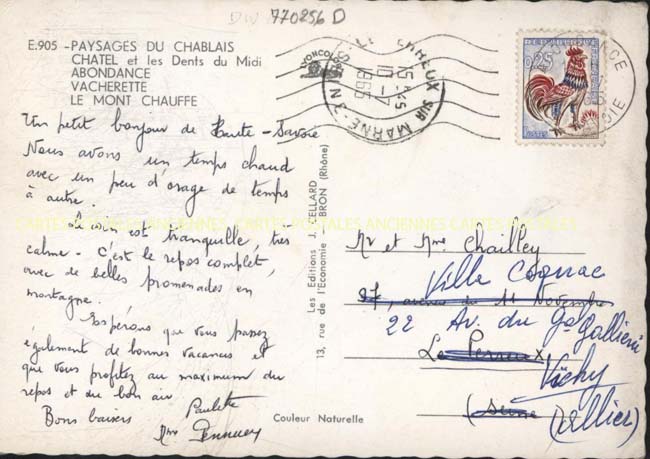 DW 770256 D
E.905 - PAYSAGES DU CHABLAIS
CHATEL et les Dents du Midi
ABONDANCE
VACHERETTE
LE MONT CHAUFFE
Un petit bonjour de Haute-Savoie
Nous avons un temps chaud
avec un peu d'orage de temps
à autre.
Le coin est tranquille, très
calme - C'est le repos complet,
avec de belles promenades en
montagne.
Espérons que vous passez
également de bonnes vacances et
que vous profitez au maximum du
repos et du bon air
Bons baisers
Paulette
Mme
Les Editions J. CELLARD
13, rue de l'Economie BRON (Rhône)
Couleur Naturelle
LYONCOLOR
SUR MARNE
15H45
10-7
1965
0,25
Mr et Mme Chailley
Ville Cognac
97, avenue du 11 Novembre
22 Av. du Gal Gallieni
Le Perreux
Vichy
(Seine)
(Allier)
CARTES POSTALES ANCIENNES CARTES POSTALES ANCIENNES CARTES POSTALES